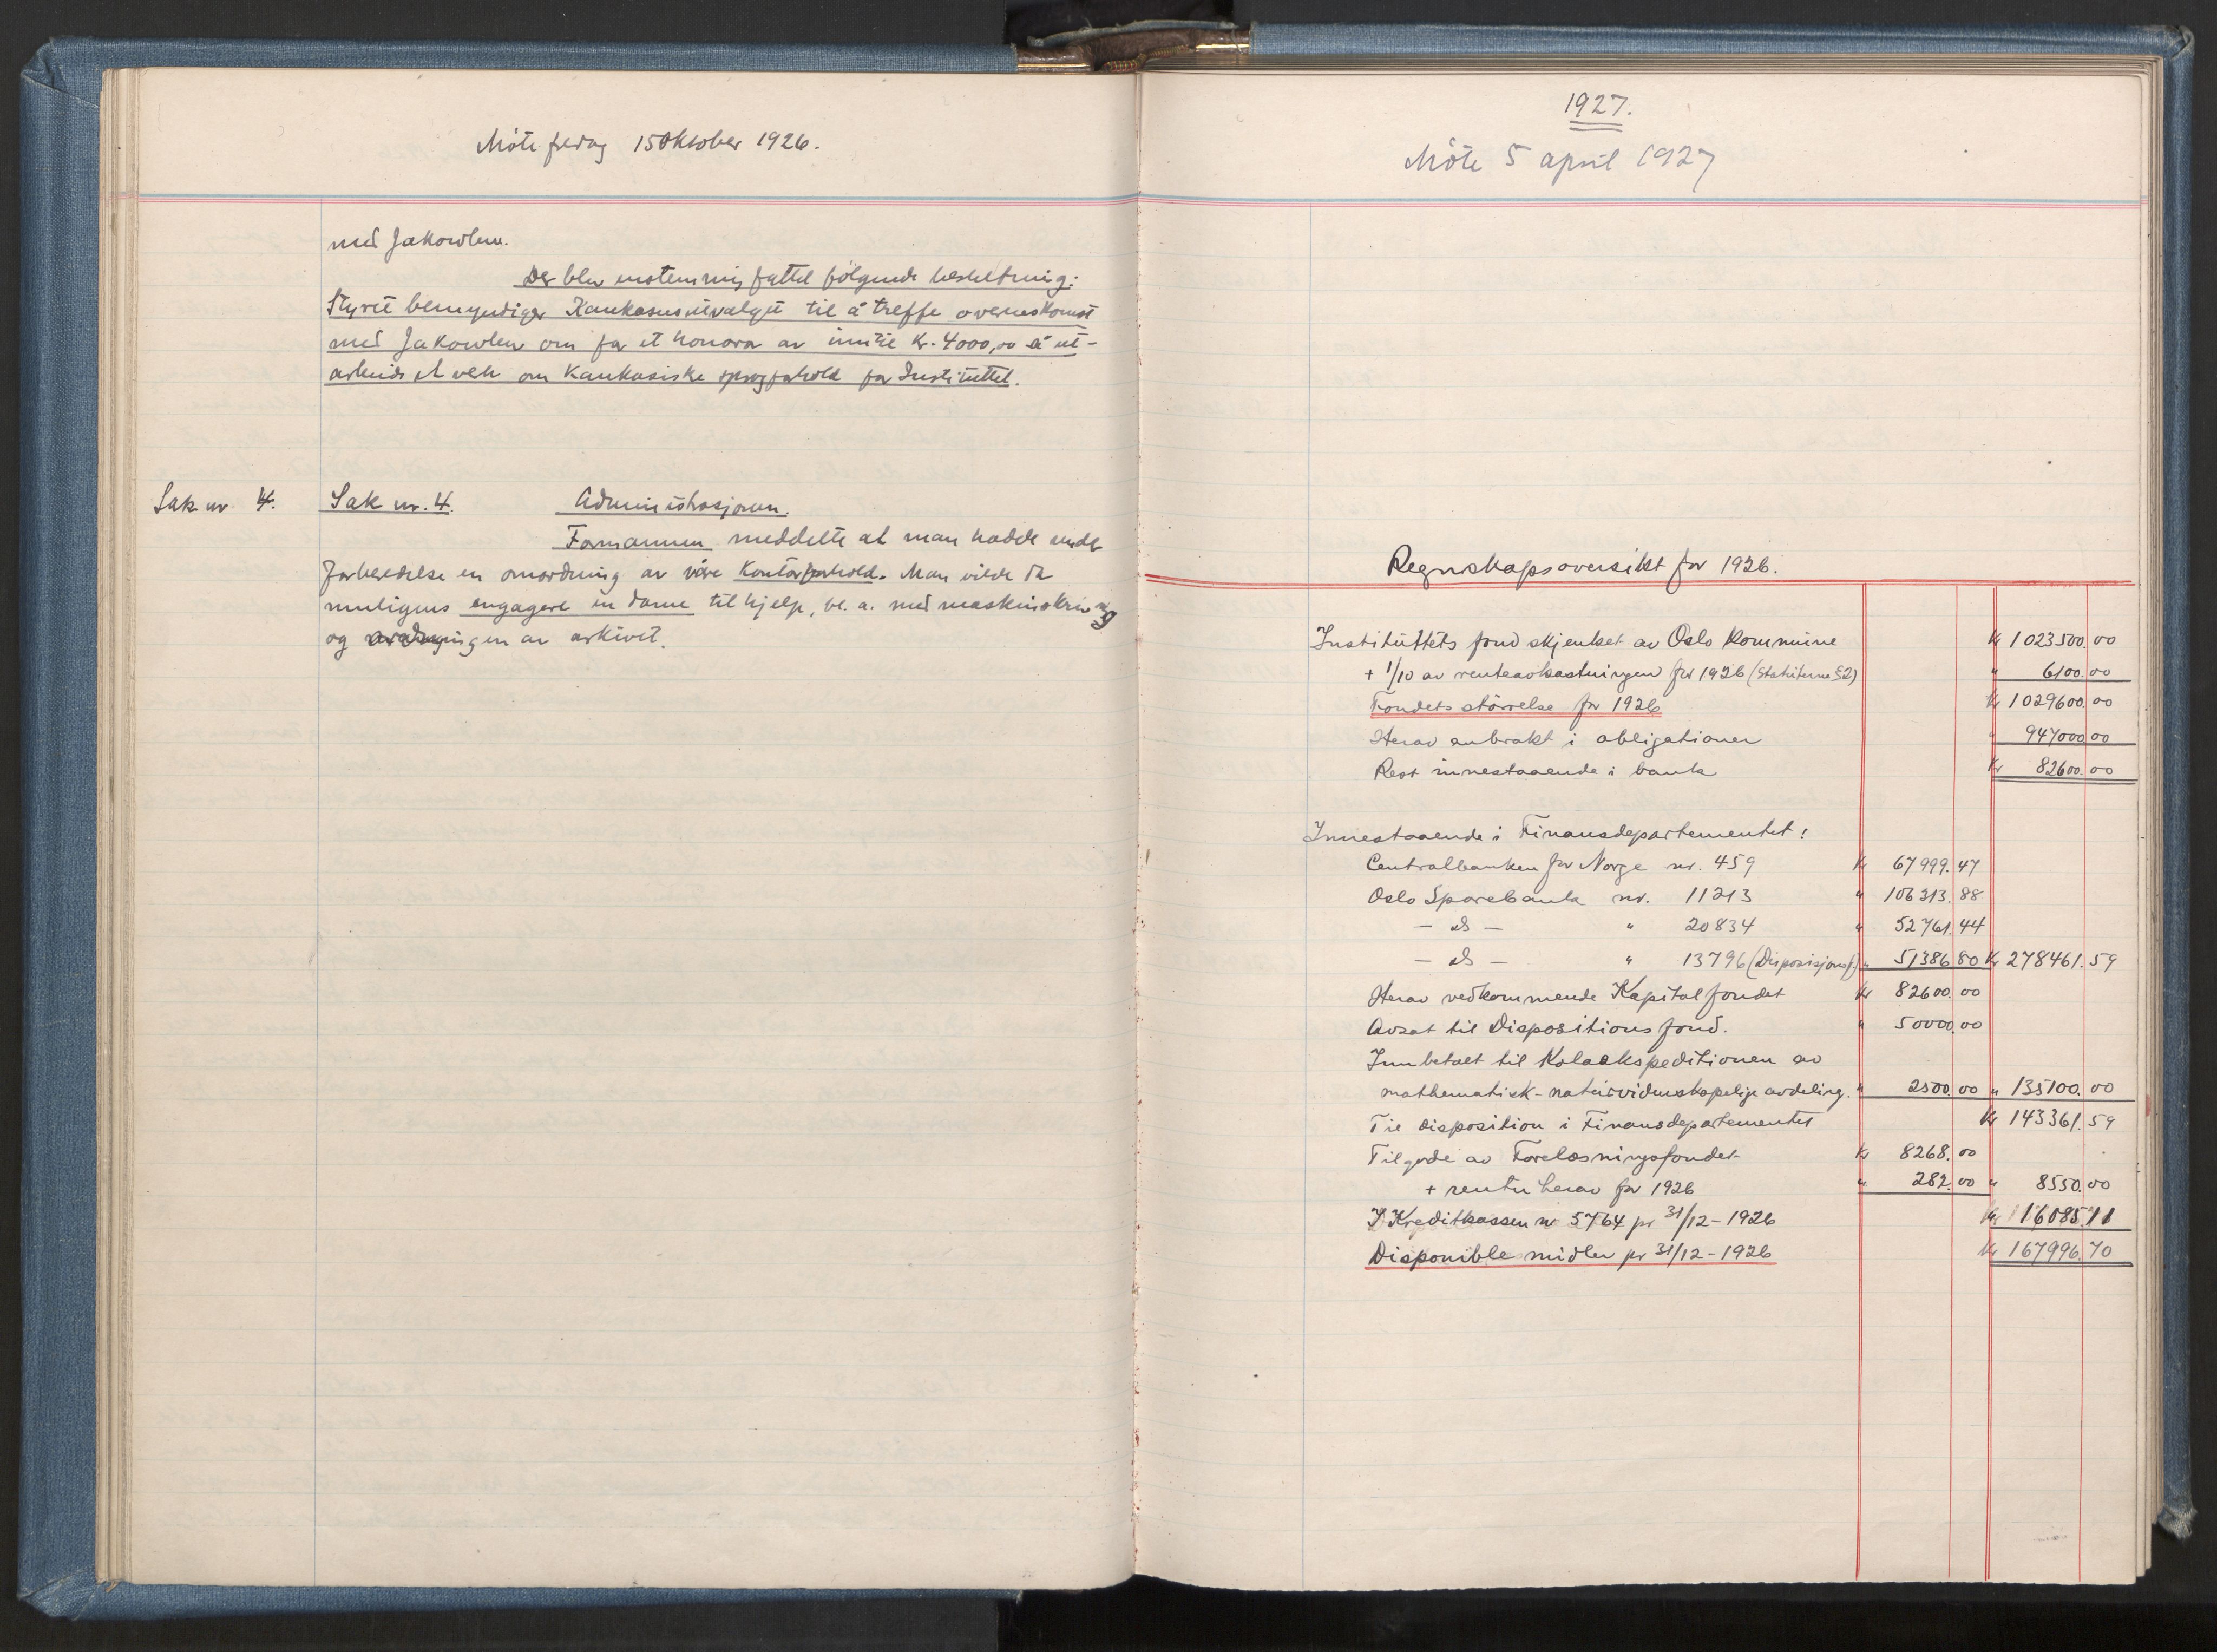 Möte fredag 15 Oktober 1926.
med Jakowlew.
Der blev enstemmig fattet følgende beslutning:
Styret bemyndiger Kaukasusutvalget til å treffe overenskomst
med Jakowlew om for et honorar av inntil kr. 4000,00 å ut-
arbeide et verk om kaukasiske sprogforhold for Instituttet.
Sak nr 4.
Sak nr. 4. Administrasjonen.
Formannen meddelte at man hadde under
forberedelse en omordning av våre kontorforhold. Man vilde da
muligens engagere en dame til hjelp, bl. a. med maskinskrivning
og ordningen av arkivet.
1927.
Möte 5 april 1927
Regnskapsoversikt for 1926.
Instituttets fond skjenket av Oslo Kommune Kr 1023500.00
+ 1/10 av renteavkastningen for 1926 (Statuterne §2) " 6100.00
Fondets størrelse for 1926 Kr 1029600.00
Herav anbrakt i obligationer " 947000.00
Rest innestaaende i bank Kr 82600.00
Innestaaende i Finansdepartementet:
Centralbanken for Norge nr. 459 Kr 67999.47
Oslo Sparebank nr. 11213 " 106313.88
— do — " 20834 " 52761.44
— do — " 13796 (Disposisjonsf.) " 51386.80 Kr 278461.59
Herav vedkommende Kapitalfondet Kr 82600.00
Avsat til Dispositionsfond. " 50000.00
Innbetalt til Kolaekspeditionen av
mathematisk-naturvidenskapelige avdeling. " 2500.00 " 135100.00
Til disposition i Finansdepartementet Kr 143361.59
Tilgode av Forelæsningsfondet Kr 8268.00
+ renter herav for 1926 " 282.00 " 8550.00
I Kreditkassen nr 5764 pr 31/12-1926 Kr 16085.11
Disponible midler pr 31/12-1926 Kr 167996.70